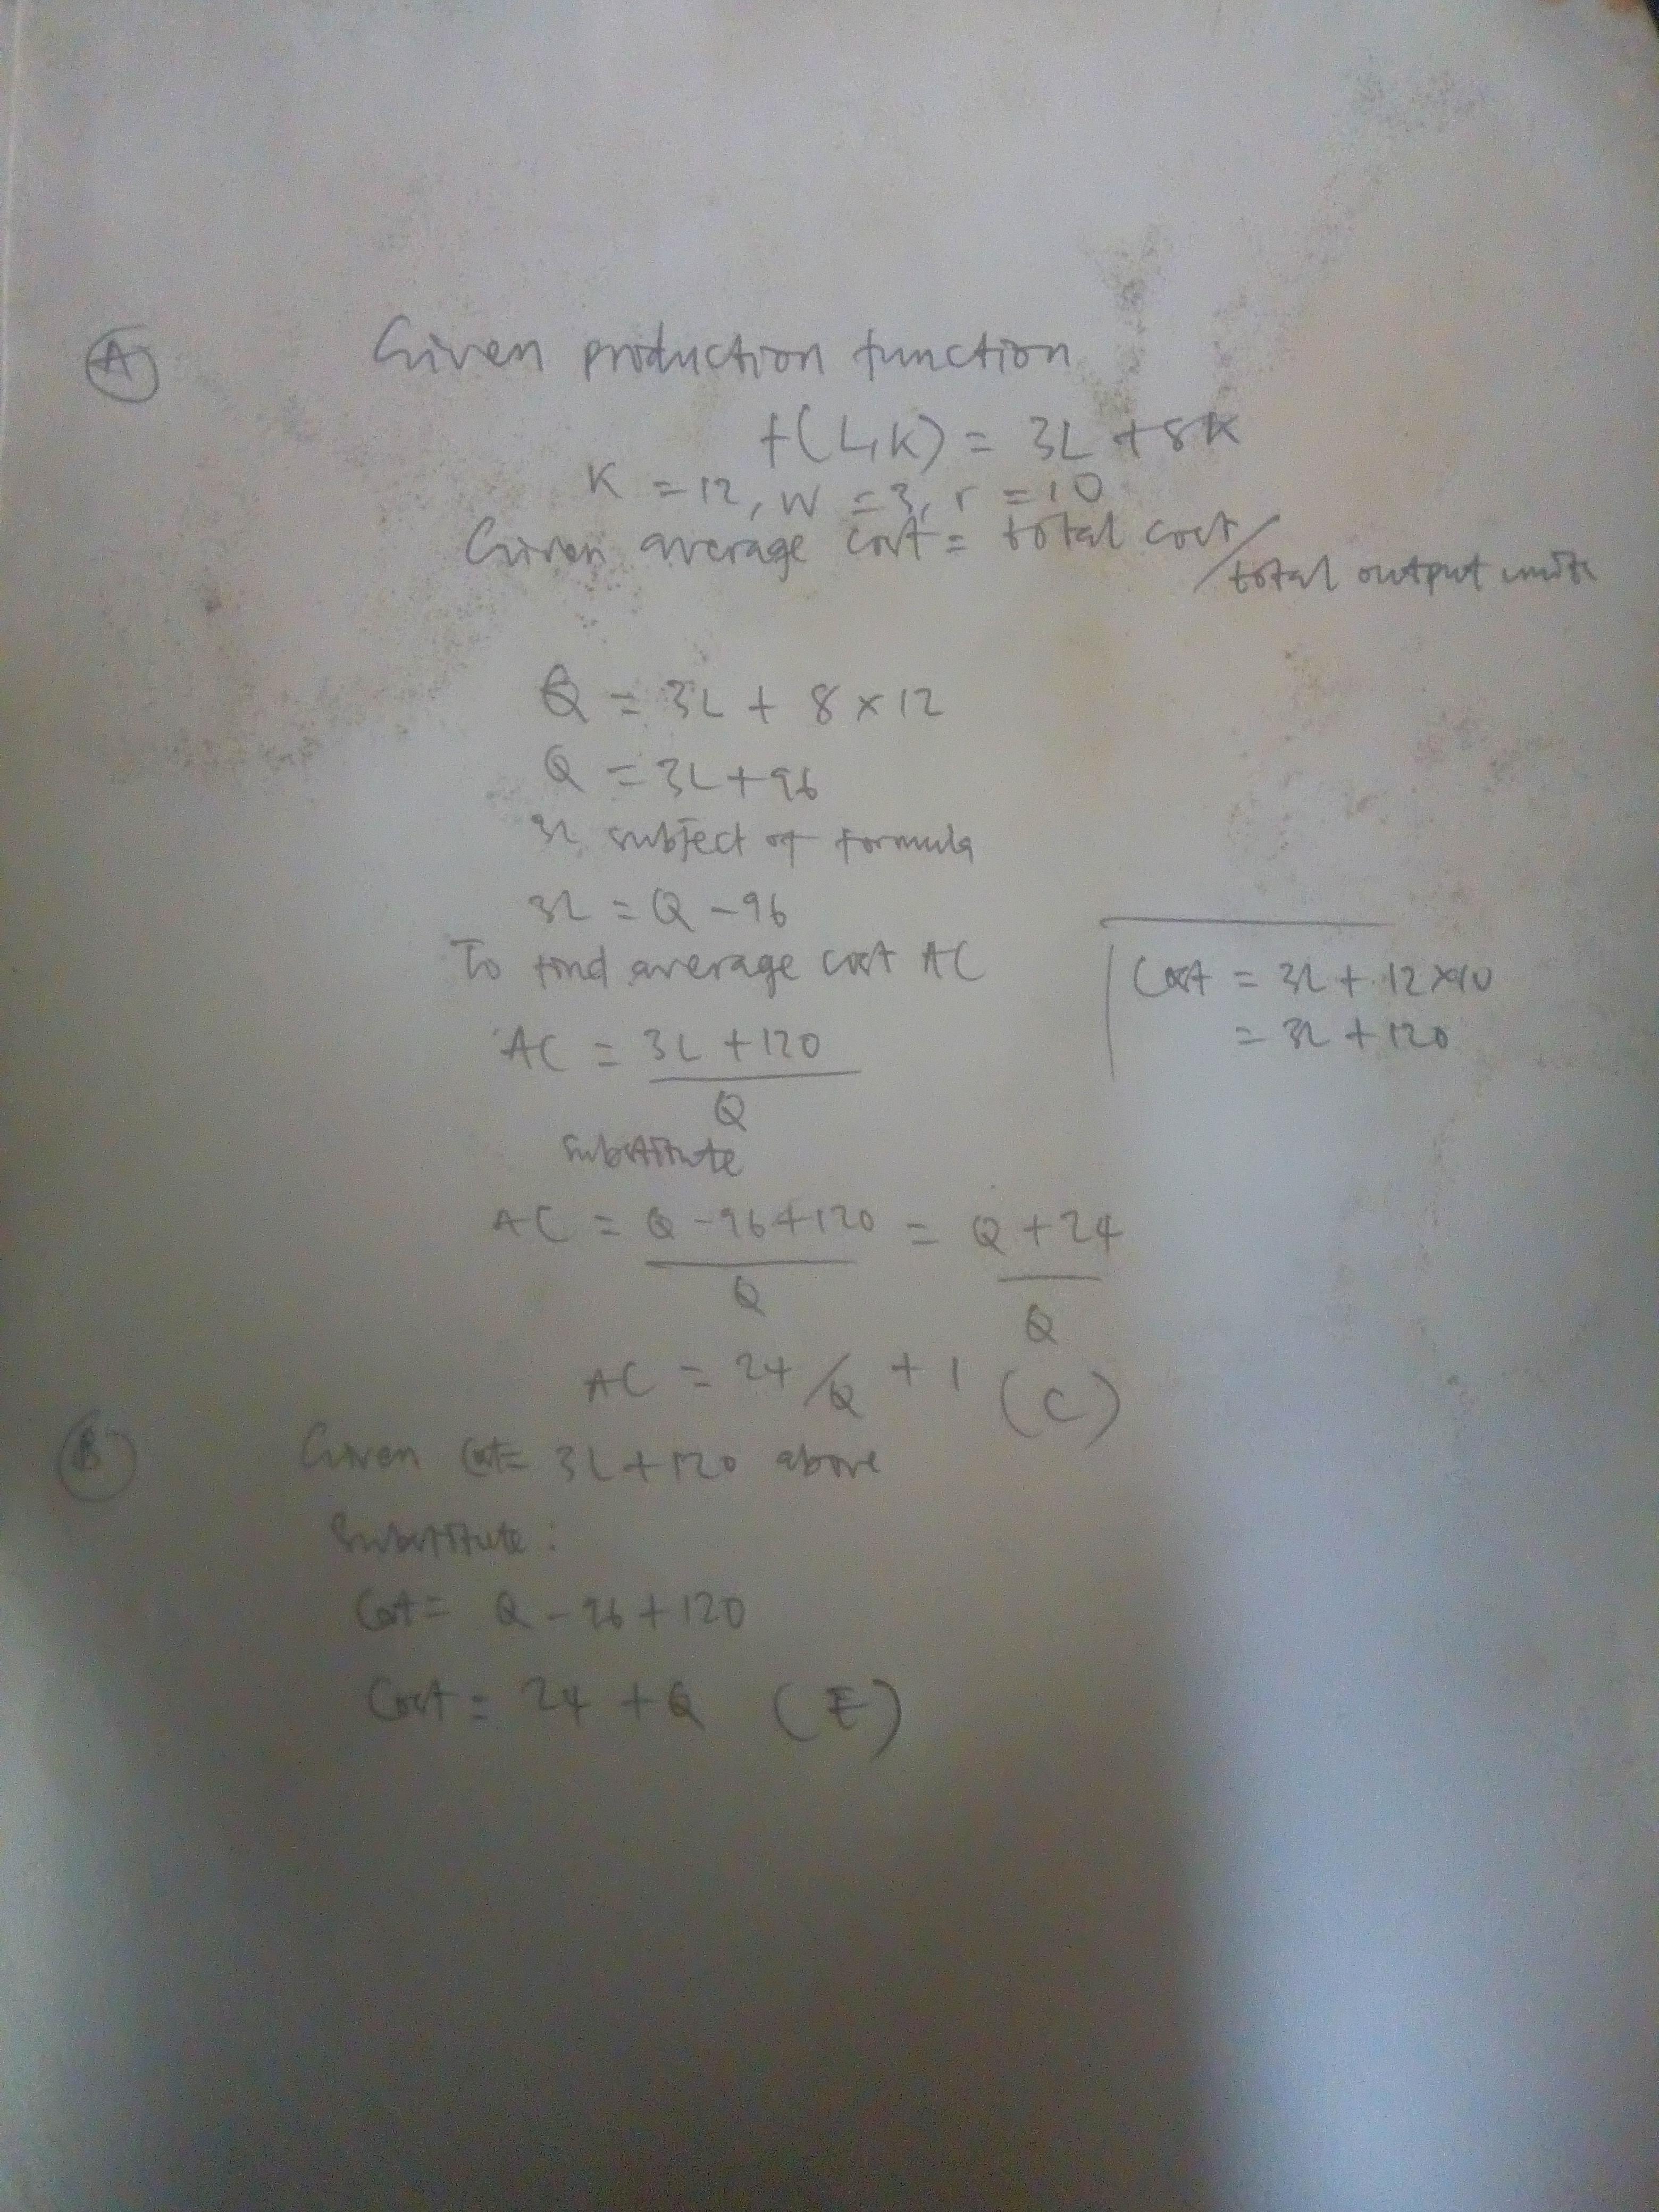 A Given production function
f(L,K) = 3L + 8K
K = 12, W = 3, r = 10
Given average cost = total cost/
total output units
Q = 3L + 8 x 12
Q = 3L + 96
3L subject of formula
3L = Q - 96
To find average cost AC
Cost = 3L + 12 x 10
= 3L + 120
AC = 3L + 120
Q
Substitute
AC = Q - 96 + 120 = Q + 24
Q Q
AC = 24/Q + 1 (C)
B Given Cost = 3L + 120 above
Substitute:
Cost = Q - 96 + 120
Cost = 24 + Q (E)